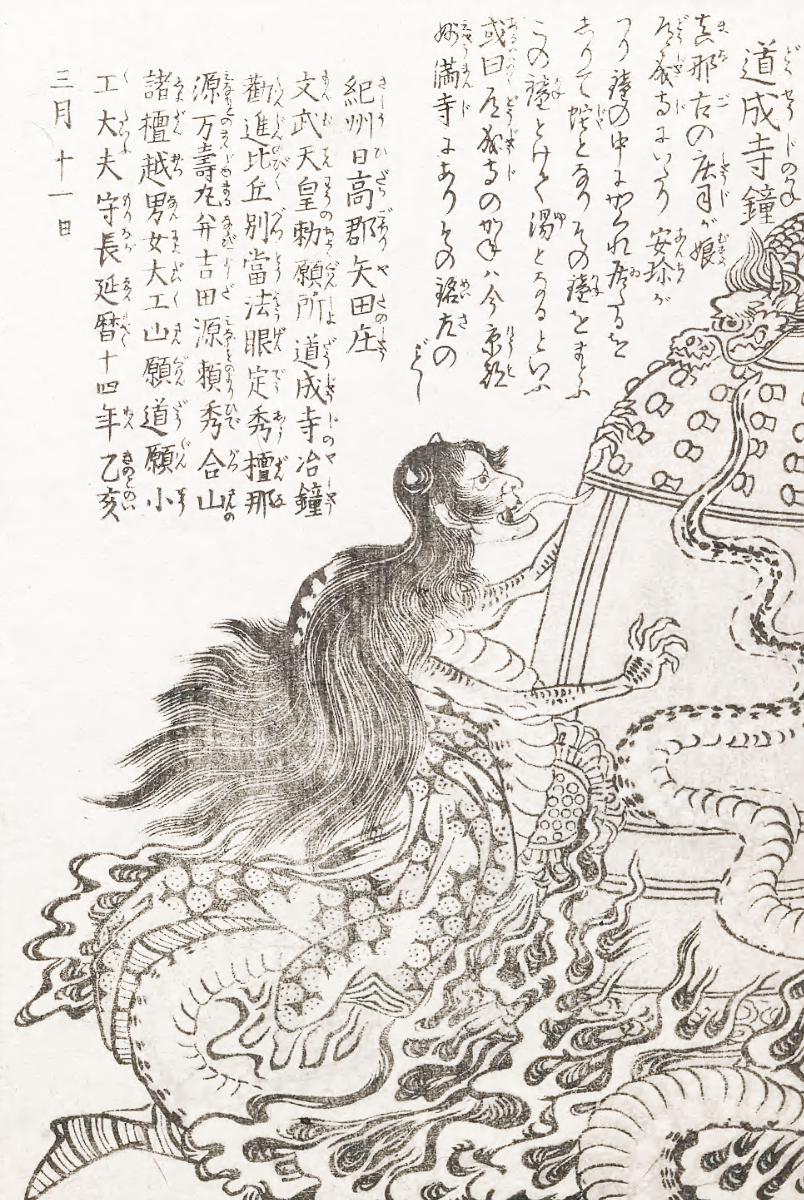 道成寺鐘
真那古の庄司が娘
道成寺にいたり 安珍が
つり鐘の中にかくれ居たるを
しりて蛇となりその鐘をまとふ
この鐘とけて湯となるといふ
或曰道成寺のかねハ今京都
妙満寺にありその銘左の
ごとし
紀州日高郡矢田庄
文武天皇勅願所道成寺冶鐘
勸進比丘別當法眼定秀檀那
源万壽丸并吉田源頼秀合山
諸檀越男女大工山願道願小
工大夫守長延暦十四年乙亥
三月十一日